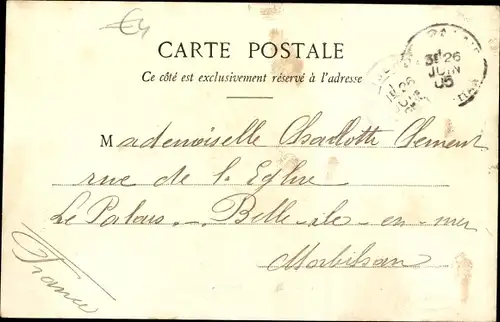 CARTE POSTALE
Ce côté est exclusivement réservé à l'adresse
3E 26
JUIN
05
26
Mademoiselle Charlotte Clement
rue de l'Eglise
Le Palais - Belle-ile-en-mer
Morbihan
France